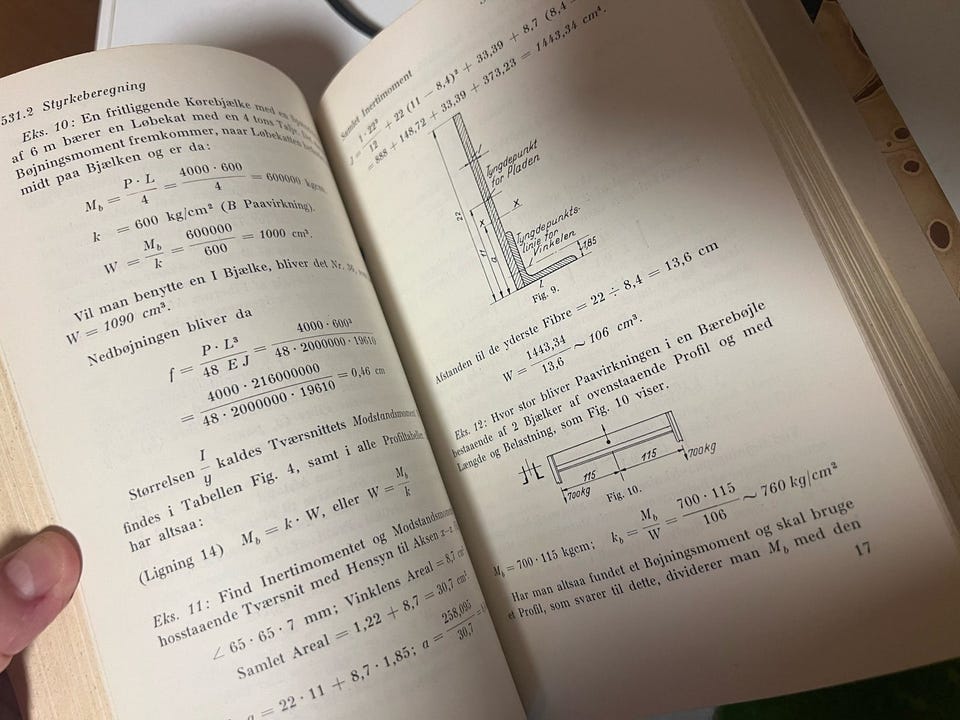 531.2 Styrkeberegning
Eks. 10: En fritliggende Kørebjælke med en
af 6 m bærer en Løbekat med en 4 tons Talje.
Bøjningsmoment fremkommer, naar Løbekatten
midt paa Bjælken og er da:
M_b = P · L / 4 = 4000 · 600 / 4 = 600000 kgcm.
k = 600 kg/cm² (B Paavirkning).
W = M_b / k = 600000 / 600 = 1000 cm³.
Vil man benytte en I Bjælke, bliver det Nr.
W = 1090 cm³.
Nedbøjningen bliver da
f = P · L³ / 48 E J = 4000 · 600³ / 48 · 2000000 · 19610
= 4000 · 216000000 / 48 · 2000000 · 19610 = 0,46 cm
Størrelsen I / y kaldes Tværsnittets Modstandsmoment
findes i Tabellen Fig. 4, samt i alle Profiltabeller
har altsaa:
(Ligning 14) M_b = k · W, eller W = M_b / k
Eks. 11: Find Inertimomentet og Modstandsmom
hosstaaende Tværsnit med Hensyn til Aksen x-x
∠ 65 · 65 · 7 mm; Vinklens Areal = 8,7 cm²
Samlet Areal = 1,22 + 8,7 = 30,7 cm².
a = 22 · 11 + 8,7 · 1,85; a = 258,095 / 30,7
Samlet Inertimoment
J = 1 · 22³ / 12 + 22 (11 − 8,4)² + 33,39 + 8,7 (8,4 −
= 888 + 148,72 + 33,39 + 373,23 = 1443,34 cm⁴.
Tyngdepunkt
for Pladen
22
x
x
Tyngdepunkts-
linie for
Vinkelen
1,85
Fig. 9.
Afstanden til de yderste Fibre = 22 ÷ 8,4 = 13,6 cm
W = 1443,34 / 13,6 ~ 106 cm³.
Eks. 12: Hvor stor bliver Paavirkningen i en Bærebøjle
bestaaende af 2 Bjælker af ovenstaaende Profil og med
Længde og Belastning, som Fig. 10 viser.
115
115
700kg
700kg
Fig. 10.
M_b = 700 · 115 kgcm; k_b = M_b / W = 700 · 115 / 106 ~ 760 kg/cm²
Har man altsaa fundet et Bøjningsmoment og skal bruge
et Profil, som svarer til dette, dividerer man M_b med den
17